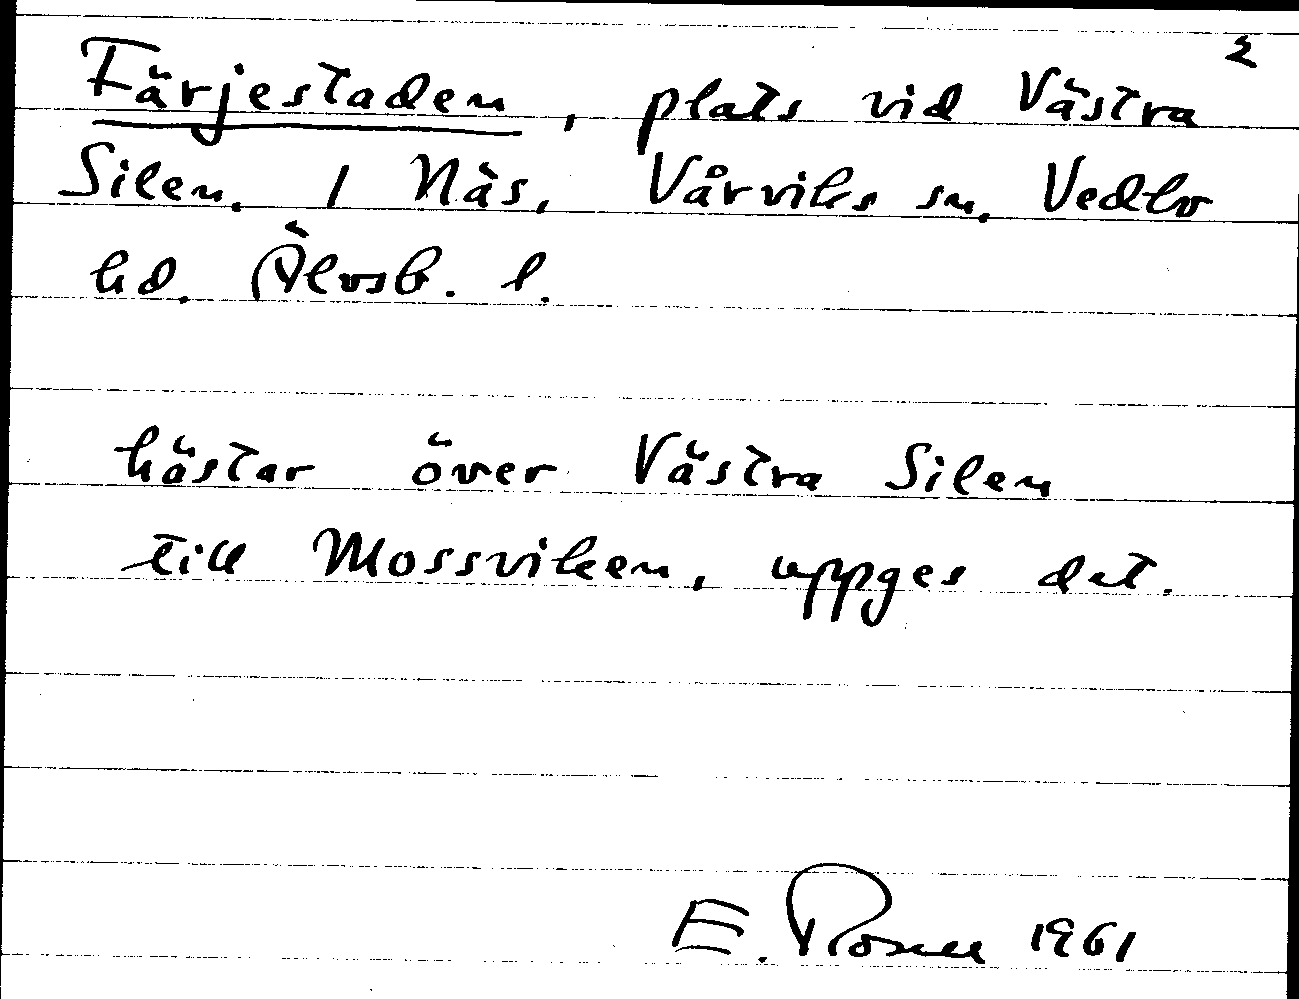 2
Färjestaden, plats vid Västra
Silen, 1 Näs, Vårviks sn, Vedbo
hd. Älvsb. l.
hästar över Västra Silen
till Mossviken, uppges det.
E. Rosell 1961